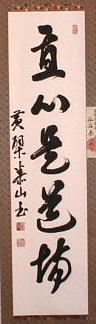 直心是道場
黄檗泰山書